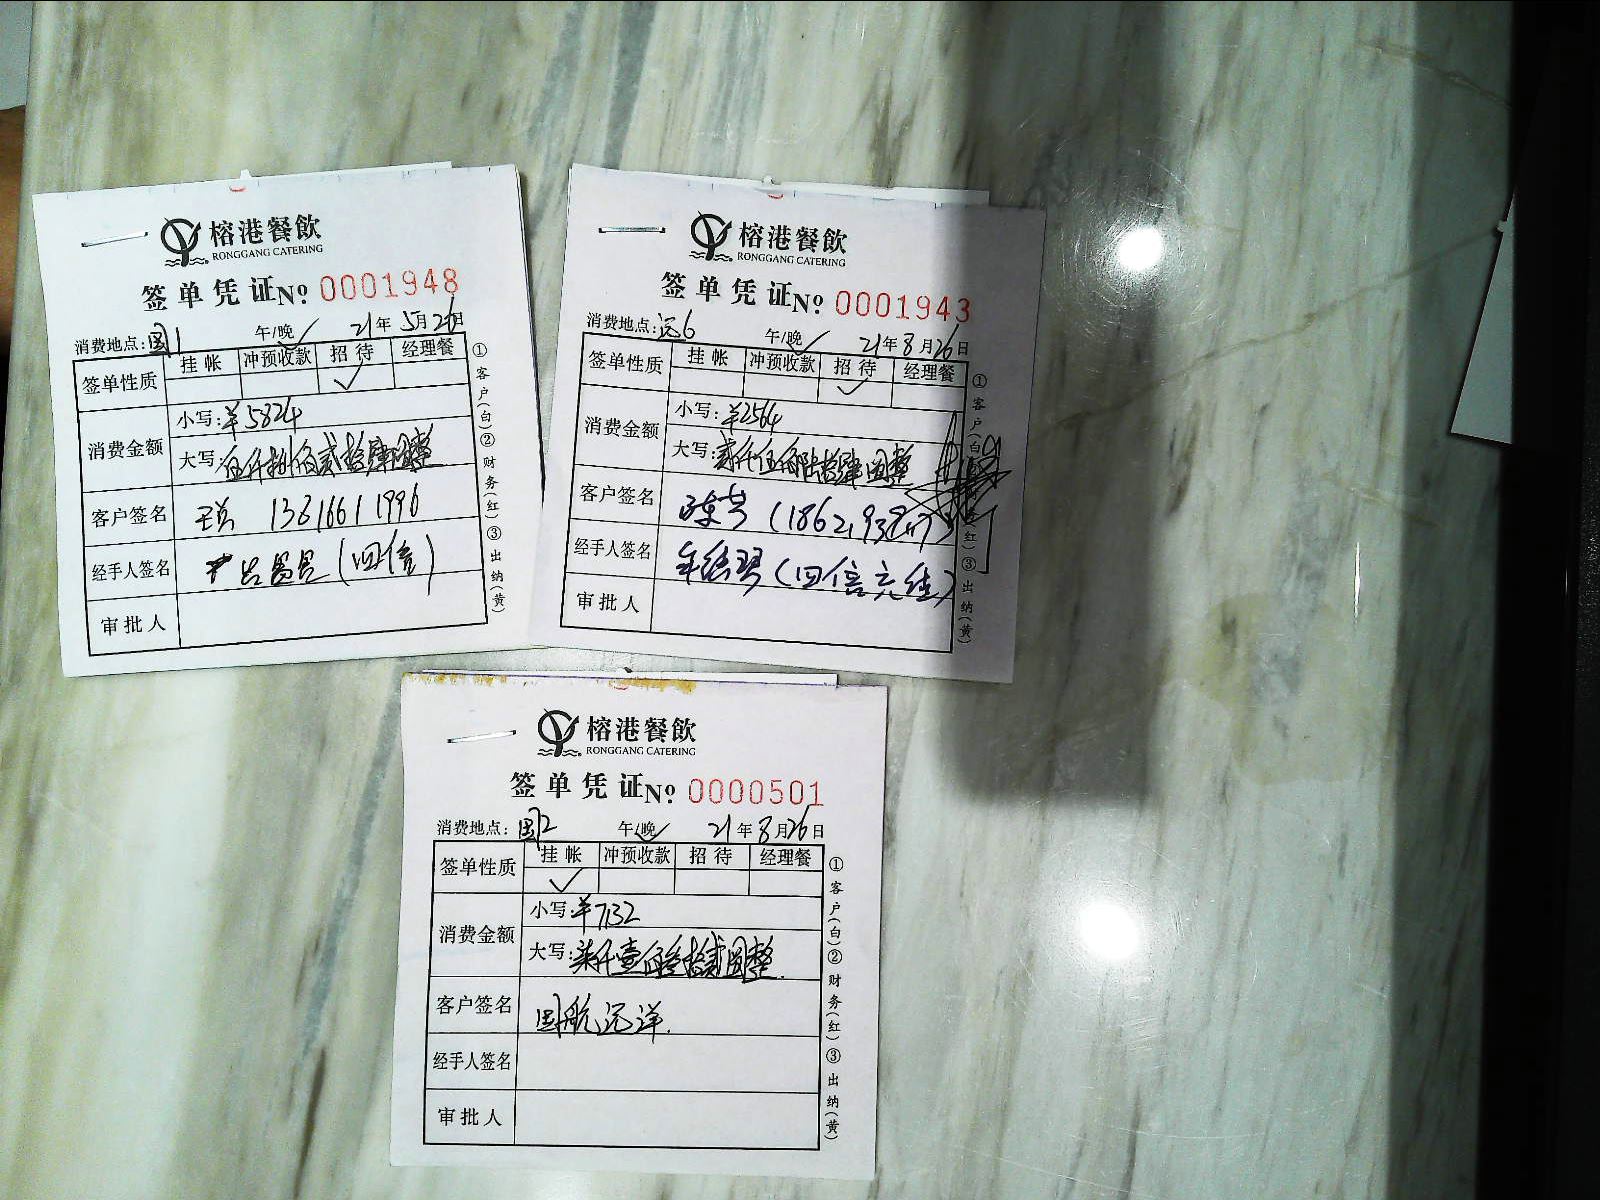 榕港餐飲
RONGGANG CATERING
签单凭证 № 0001948
消费地点:国1 午/晚✓ 21年5月26日
签单性质 挂帐 冲预收款 招待 经理餐
✓
消费金额 小写:¥5824
大写:伍仟捌佰贰拾肆圆整
客户签名 13616611996
经手人签名 (四信)
审批人
①客户(白)②财务(红)③出纳(黄)
榕港餐飲
RONGGANG CATERING
签单凭证 № 0001943
消费地点:远6 午/晚✓ 21年8月26日
签单性质 挂帐 冲预收款 招待 经理餐
✓
消费金额 小写:¥2564
大写:仟伍佰陆拾肆圆整
客户签名 陈芳
经手人签名
审批人
①客户(白)②财务(红)③出纳(黄)
榕港餐飲
RONGGANG CATERING
签单凭证 № 0000501
消费地点:国2 午/晚✓ 21年8月26日
签单性质 挂帐 冲预收款 招待 经理餐
✓
消费金额 小写:¥7132
大写:柒仟壹佰叁拾贰圆整.
客户签名 国航远洋.
经手人签名
审批人
①客户(白)②财务(红)③出纳(黄)